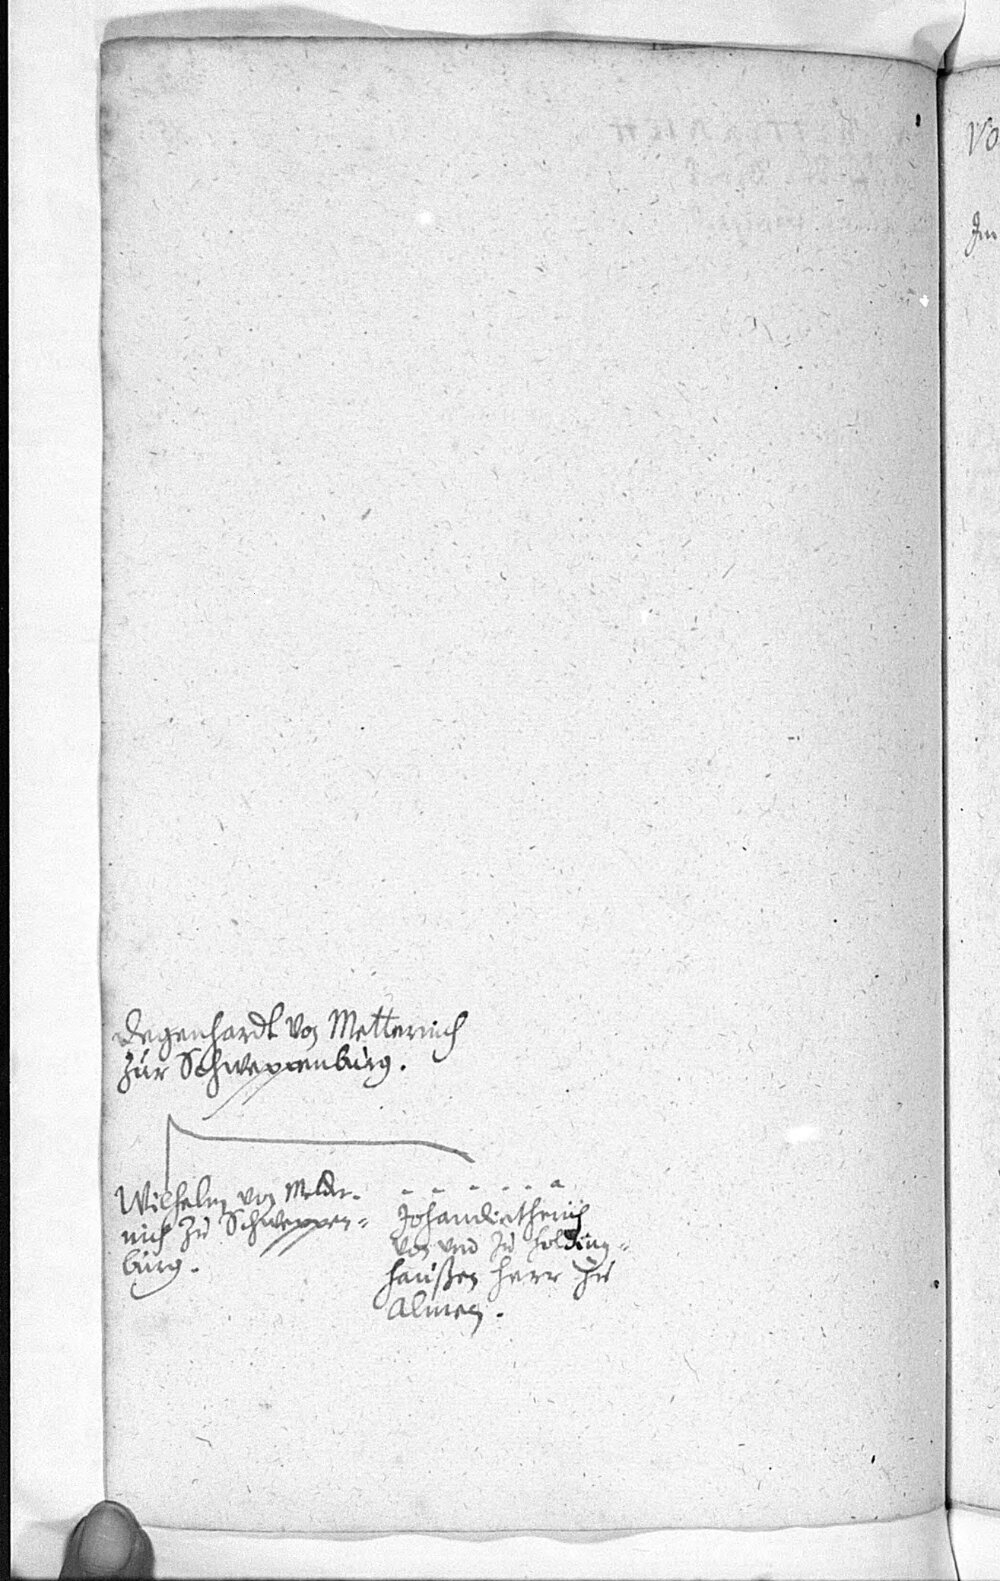 Degenhardt von Metternich
zur Schweppenburg.
Wilhelm von Metter-
nich zu Schweppen=
burg.
- - - - - a
Johandietherich
von und zu Holding=
haußen Herr zu
Almen.
Vo
Im